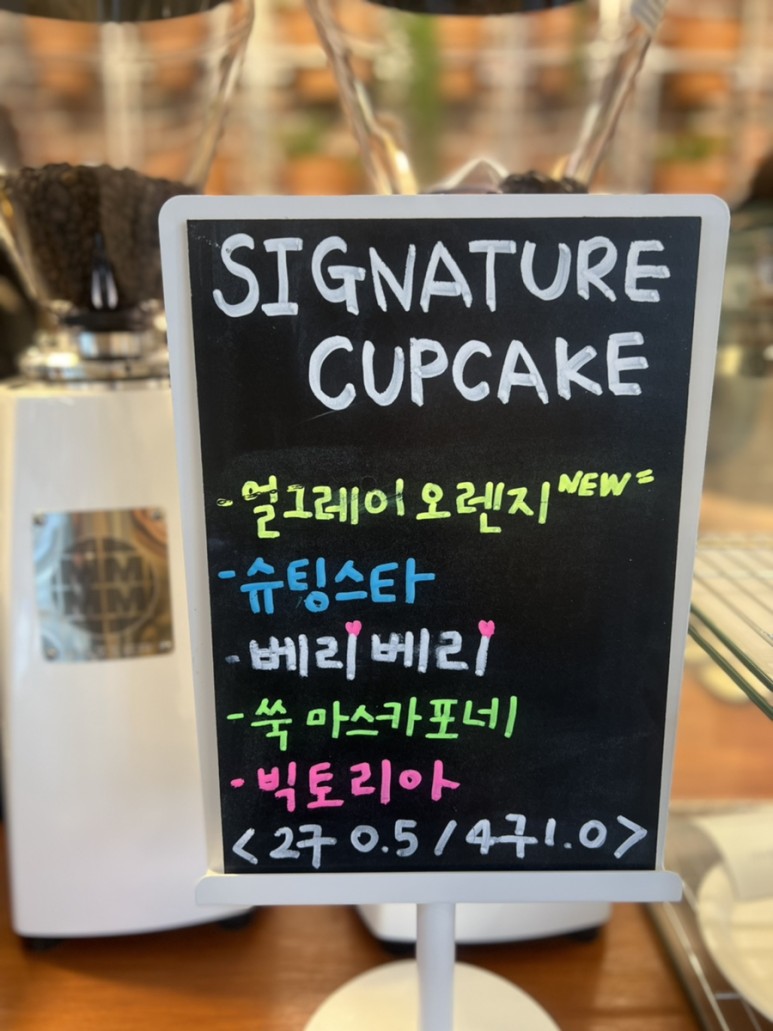 SIGNATURE
CUPCAKE
- 얼그레이 오렌지 NEW=
- 슈팅스타
- 베리베리
- 쑥 마스카포네
- 빅토리아
<2구 0.5 / 4구 1.0>
MM
MM